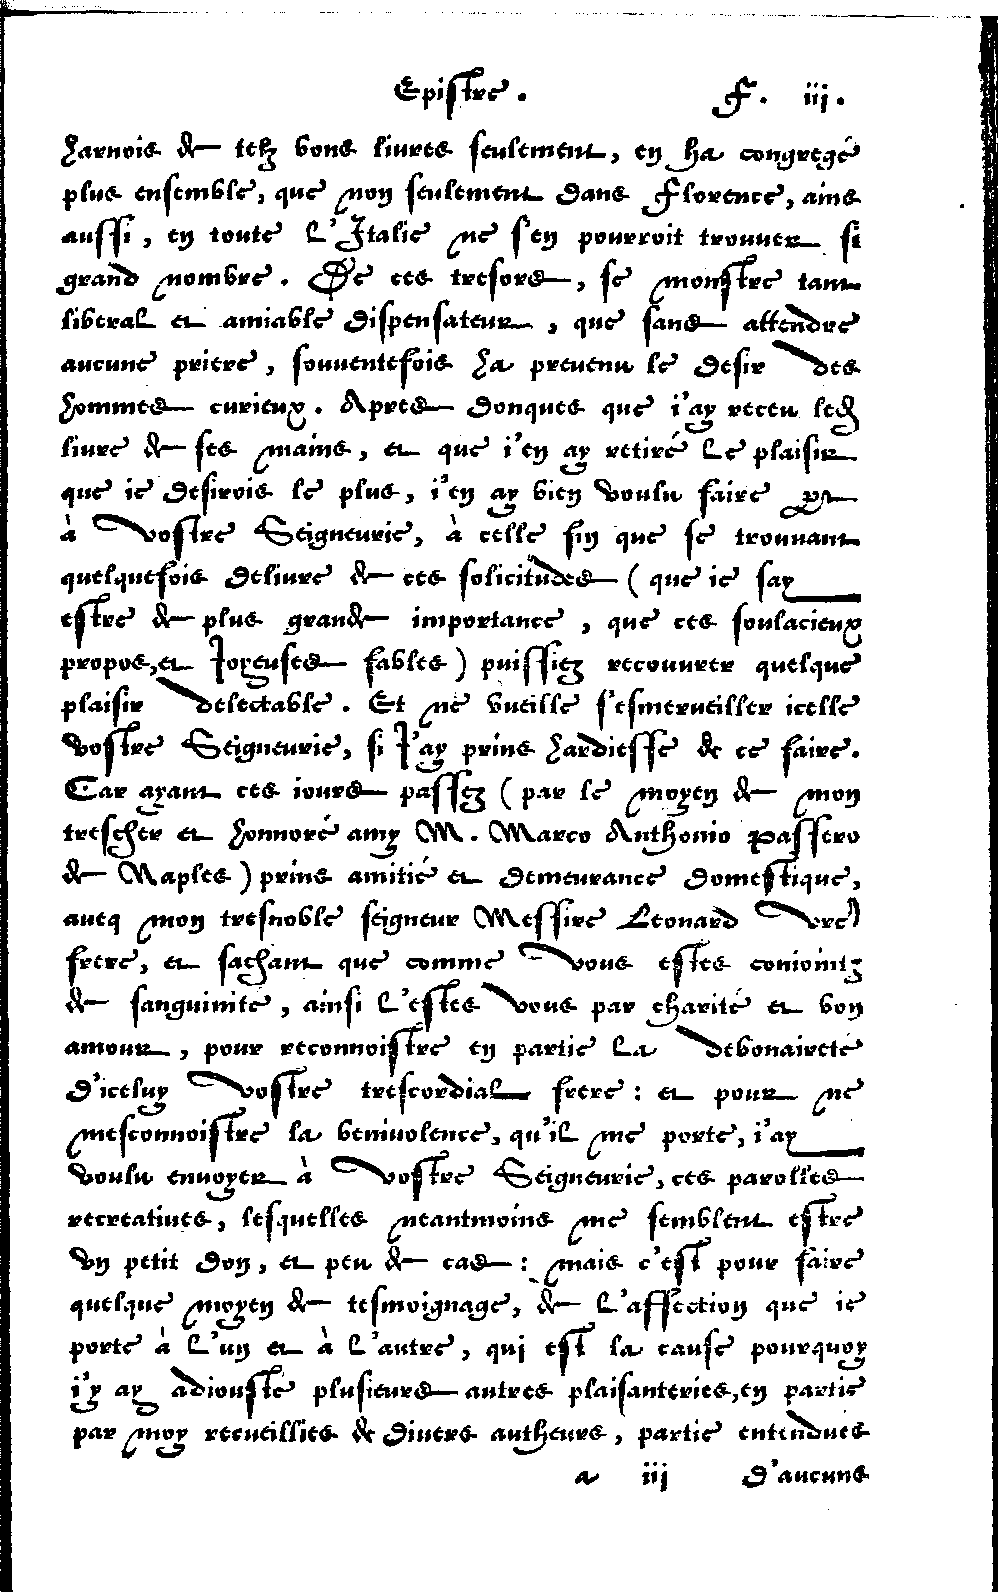 Epistre. F. iij.
harnois de telz bons liures seulement, en ha congregé
plus ensemble, que non seulement dans Florence, ains
aussi, en toute L'Italie ne s'en pourroit trouuer si
grand nombre. De ces tresors, se monstre tant
liberal et amiable dispensateur, que sans attendre
aucune priere, souuentefois ha preuenu le desir des
hommes curieux. Apres donques que i'ay receu led
liure de ses mains, et que i'en ay retiré Le plaisir
que ie desirois le plus, i'en ay bien voulu faire part
à vostre Seigneurie, à celle fin que se trouuant
quelquefois deliure de ces solicitudes (que ie say
estre de plus grande importance, que ces soulacieux
propos, et Joyeuses fables) puissiez recouurer quelque
plaisir delectable. Et ne vueille s'esmerueiller icelle
vostre Seigneurie, si J'ay prins hardiesse de ce faire.
Car ayant ces iours passez (par le moyen de mon
trescher et honnoré amy M. Marco Anthonio Passero
de Naples) prins amitié et demeurance domestique,
aueq mon tresnoble seigneur Messire Leonard vre
frere, et sachant que comme vous estes coniointz
de sanguinité, ainsi L'estes vous par charité et bon
amour, pour reconnoistre en partie La debonaireté
d'iceluy vostre trescordial frere: et pour ne
mesconnoistre la beniuolence, qu'il me porte, i'ay
voulu enuoyer à vostre Seigneurie, ces parolles
recreatiues, lesquelles neantmoins me semblent estre
vn petit don, et peu de cas: mais c'est pour faire
quelque moyen de tesmoignage, de L'affection que ie
porte à L'un et à L'autre, qui est la cause pourquoy
i'y ay adiousté plusieurs autres plaisanteries, en partie
par moy recueillies de diuers autheurs, partie entendues
a iij d'aucuns